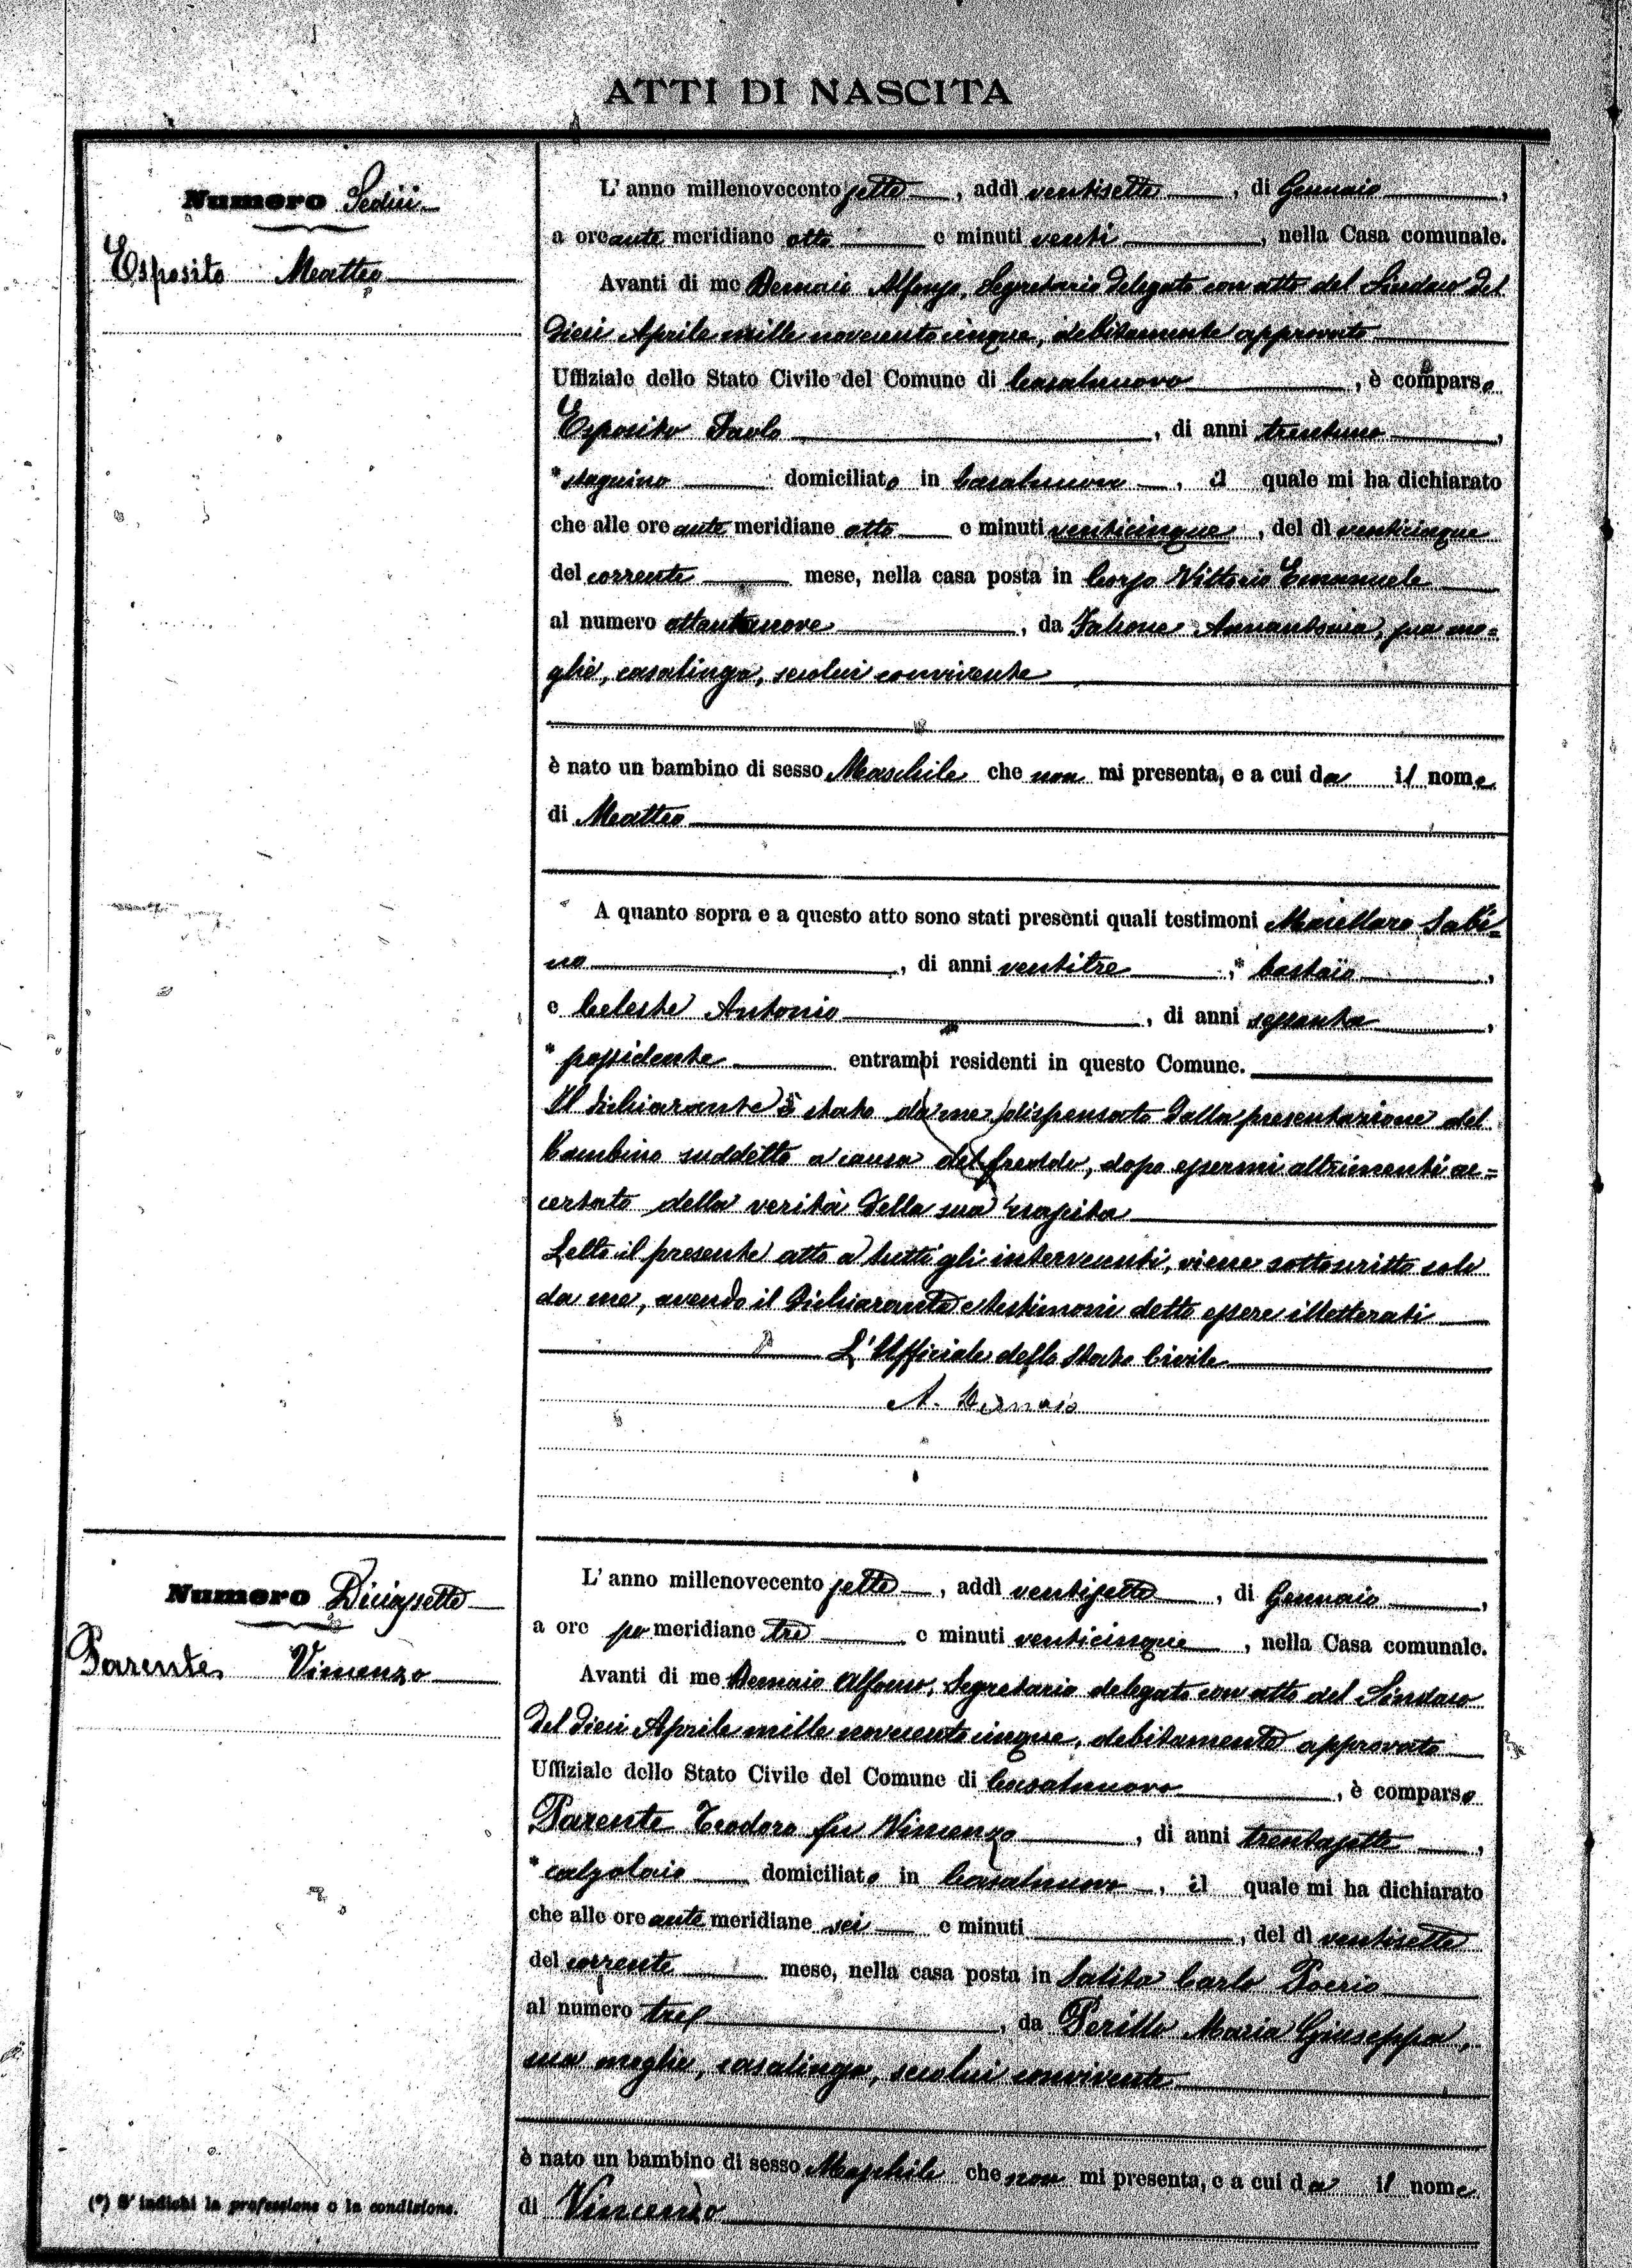 ATTI DI NASCITA
Numero Sedici
Esposito Matteo
L'anno millenovecento sette, addì ventisette, di Gennaio,
a ore ante meridiane otto e minuti venti, nella Casa comunale.
Avanti di me Demaio Alfonso, Segretario delegato con atto del Sindaco del
dieci Aprile mille novecento cinque, debitamente approvato
Uffiziale dello Stato Civile del Comune di Casalnuovo, è comparso
Esposito Paolo, di anni trentuno,
*stagnino domiciliato in Casalnuovo, il quale mi ha dichiarato
che alle ore ante meridiane otto e minuti venticinque, del dì venticinque
del corrente mese, nella casa posta in Corso Vittorio Emanuele
al numero ottantanove, da Falcone Annantonia, sua mo=
glie, casalinga, secolui convivente
è nato un bambino di sesso Maschile che non mi presenta, e a cui da il nome
di Matteo
A quanto sopra e a questo atto sono stati presenti quali testimoni Macellaro Sabi=
no, di anni ventitre, * bastaio,
e Celeste Antonio, di anni sessanta,
* possidente entrambi residenti in questo Comune.
Il dichiarante è stato da me dispensato dalla presentazione del
bambino suddetto a causa del freddo, dopo essermi altrimenti ac=
certato della verità della sua nascita
Letto il presente atto a tutti gli intervenuti, viene sottoscritto solo
da me, avendo il dichiarante e testimoni detto essere illetterati
L'Ufficiale dello Stato Civile
A. Demaio
Numero Diciassette
Parente Vincenzo
L'anno millenovecento sette, addì ventisette, di Gennaio,
a ore po meridiane tre e minuti venticinque, nella Casa comunale.
Avanti di me Demaio Alfonso, Segretario delegato con atto del Sindaco
del dieci Aprile mille novecento cinque, debitamente approvato
Uffiziale dello Stato Civile del Comune di Casalnuovo, è comparso
Parente Teodoro fu Vincenzo, di anni trentasette,
* calzolaio domiciliato in Casalnuovo, il quale mi ha dichiarato
che alle ore ante meridiane sei e minuti, del dì ventisette
del corrente mese, nella casa posta in Salita Carlo Poerio
al numero tre, da Perillo Maria Giuseppa,
sua moglie, casalinga, secolui convivente
è nato un bambino di sesso Maschile che non mi presenta, e a cui da il nome
di Vincenzo
(*) S'indichi la professione o la condizione.